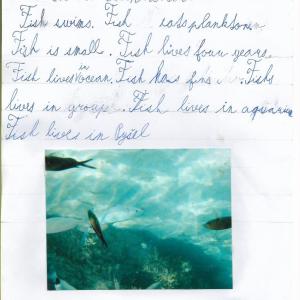 Fish swims. Fish eats planktons.
Fish is small. Fish lives four years.
Fish lives in ocean. Fish has fins. Fish
lives in groups. Fish lives in aquarium
Fish lives in